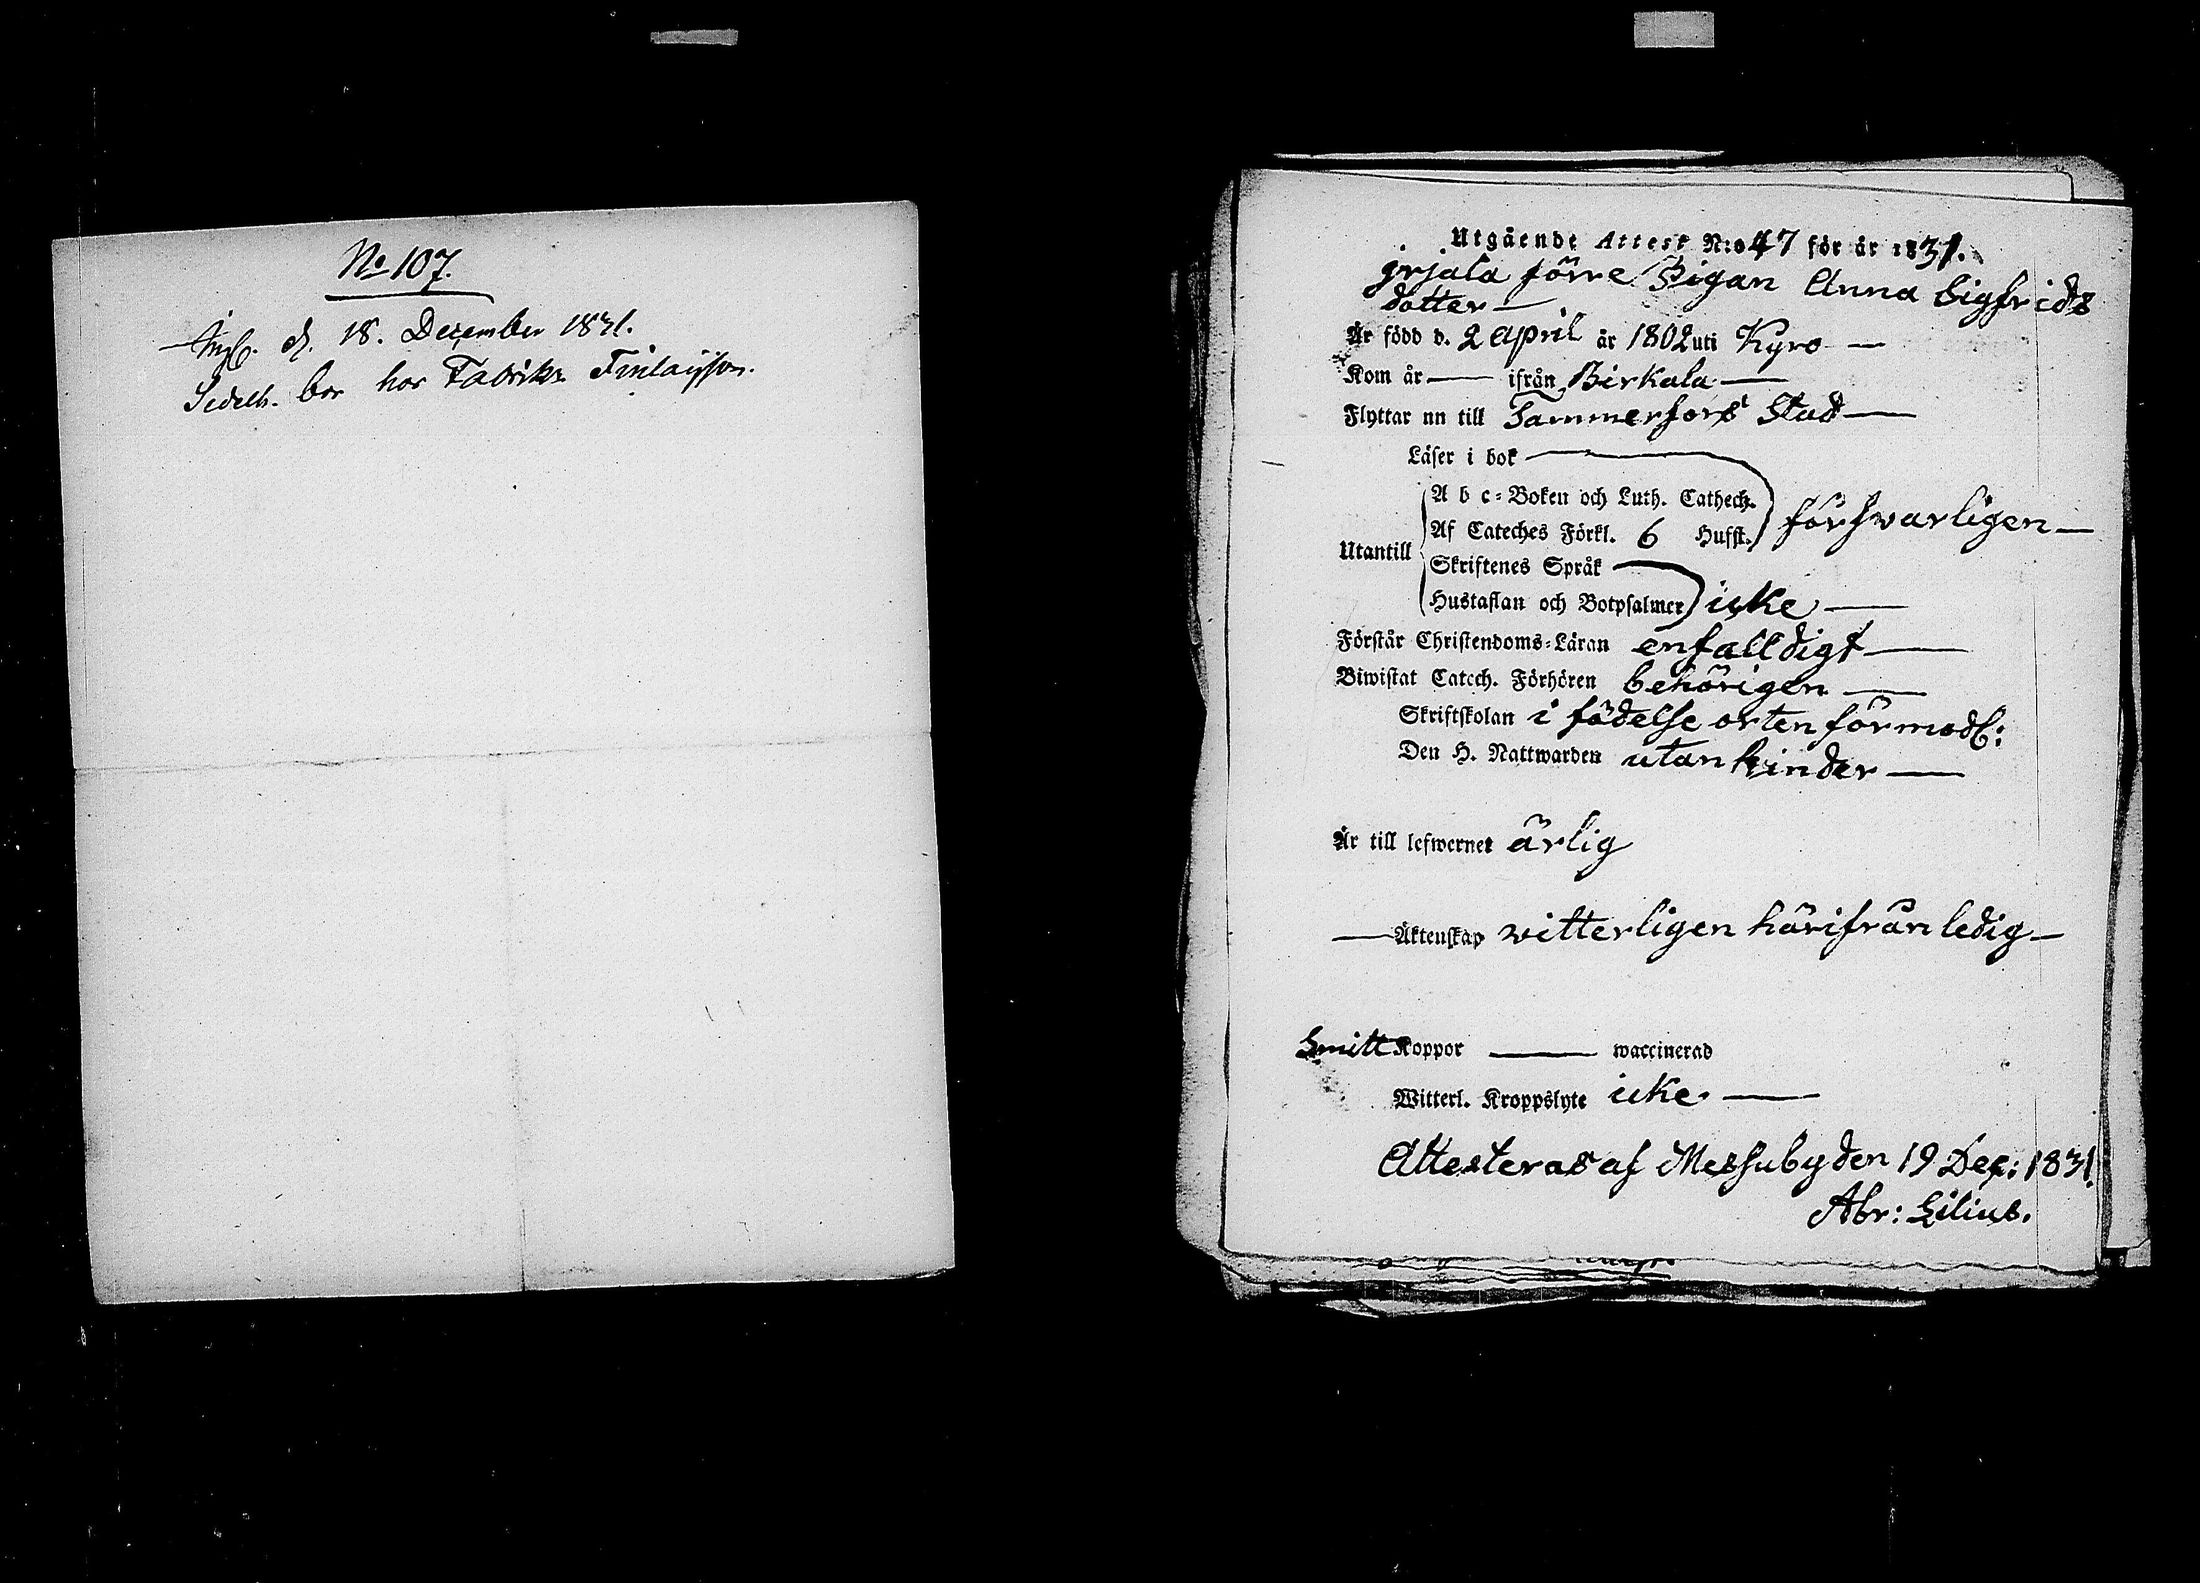 No 107.
Inl. d. 18. December 1831.
Sedelh. bor hos Fabrikr Finlaysson.
Utgående Attest N:o 47 för år 1831.
Irjala förre Pigan Anna Sigfrids
dotter —
Är född d. 2 April år 1802 uti Kyro —
Kom år — ifrån Birkala —
Flyttar nu till Tammerfors Stad —
Läser i bok
A b c-Boken och Luth. Cathech.
Af Cateches Förkl. 6 Hufst. försvarligen —
Utantill
Skriftenes Språk
Hustaflan och Botpsalmer icke —
Förstår Christendoms-Läran enfalldigt —
Biwistat Catech. Förhören behörigen —
Skriftskolan i födelse orten förmodl:
Den H. Nattwarden utan hinder —
Är till lefwernet ärlig
— Äktenskap witterligen härifrån ledig —
Smitt Koppor — waccinerad
Witterl. Kroppslyte icke —
Attesteras af Messuby den 19 Dec: 1831.
Abr: Lilius.